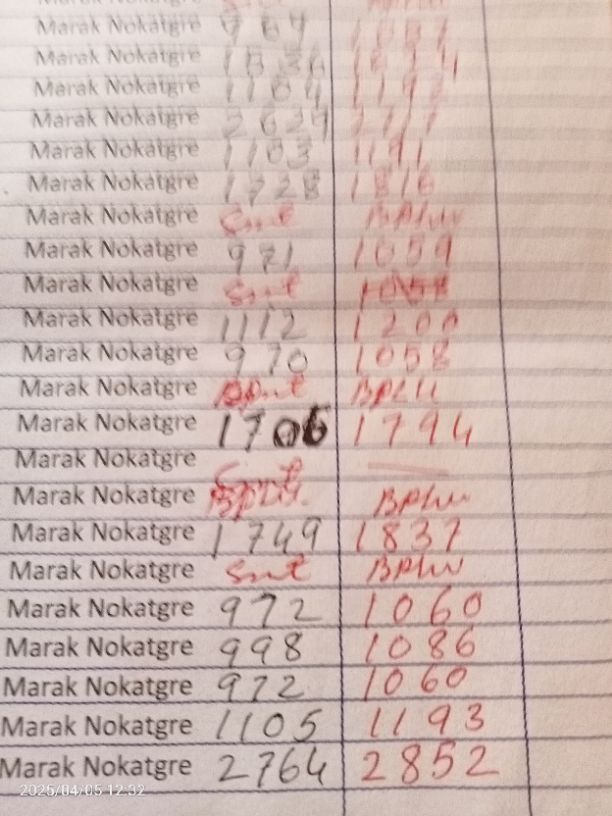 Marak Nokatgre 969 1057
Marak Nokatgre 1836 1924
Marak Nokatgre 1104 1192
Marak Nokatgre 2629 2717
Marak Nokatgre 1103 1191
Marak Nokatgre 1728 1816
Marak Nokatgre Smt
Marak Nokatgre 971 1059
Marak Nokatgre Smt
Marak Nokatgre 1112 1200
Marak Nokatgre 970 1058
Marak Nokatgre
Marak Nokatgre 1706 1794
Marak Nokatgre
Marak Nokatgre
Marak Nokatgre 1749 1837
Marak Nokatgre Smt
Marak Nokatgre 972 1060
Marak Nokatgre 998 1086
Marak Nokatgre 972 1060
Marak Nokatgre 1105 1193
Marak Nokatgre 2764 2852
2025/04/05 12:32